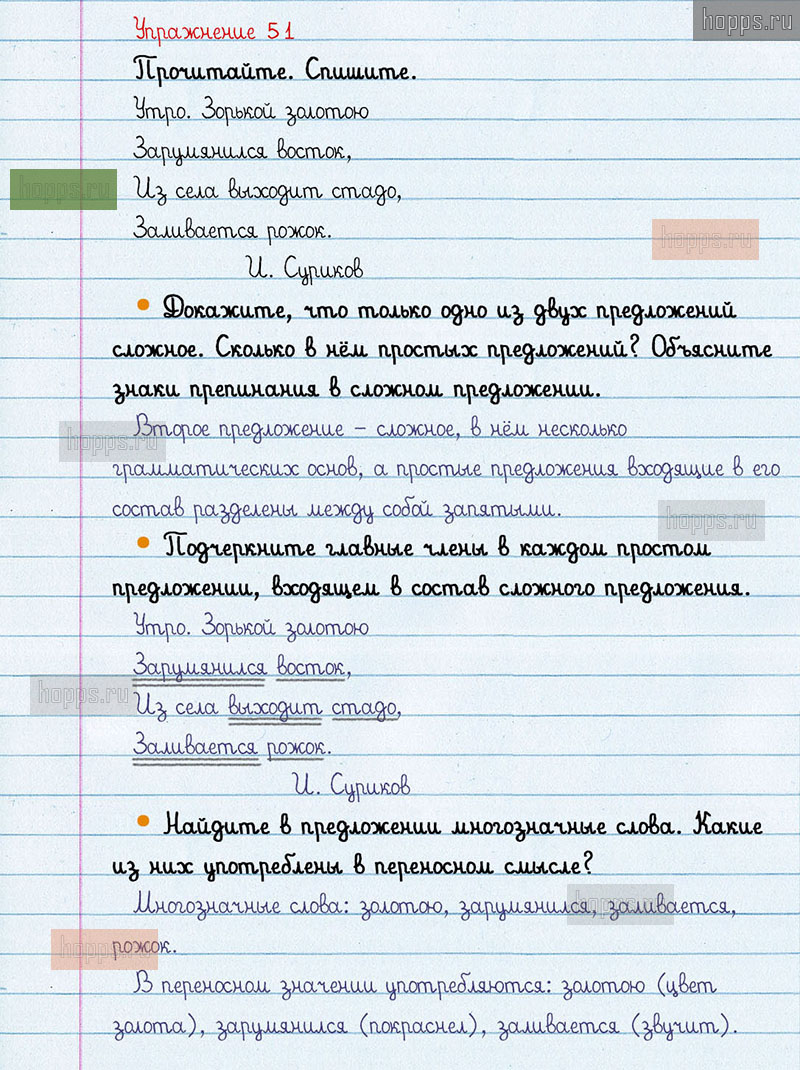 hopps.ru
Упражнение 51
Прочитайте. Спишите.
Утро. Зорькой золотою
Зарумянился восток,
hopps.ru
Из села выходит стадо,
Заливается рожок.
hopps.ru
И. Суриков
• Докажите, что только одно из двух предложений
сложное. Сколько в нём простых предложений? Объясните
знаки препинания в сложном предложении.
Второе предложение – сложное, в нём несколько
hopps.ru
грамматических основ, а простые предложения входящие в его
состав разделены между собой запятыми.
hopps.ru
• Подчеркните главные члены в каждом простом
предложении, входящем в состав сложного предложения.
Утро. Зорькой золотою
Зарумянился восток,
hopps.ru
Из села выходит стадо,
Заливается рожок.
И. Суриков
• Найдите в предложении многозначные слова. Какие
из них употреблены в переносном смысле?
Многозначные слова: золотою, зарумянился, заливается,
hopps.ru
рожок.
hopps.ru
В переносном значении употребляются: золотою (цвет
золота), зарумянился (покраснел), заливается (звучит).